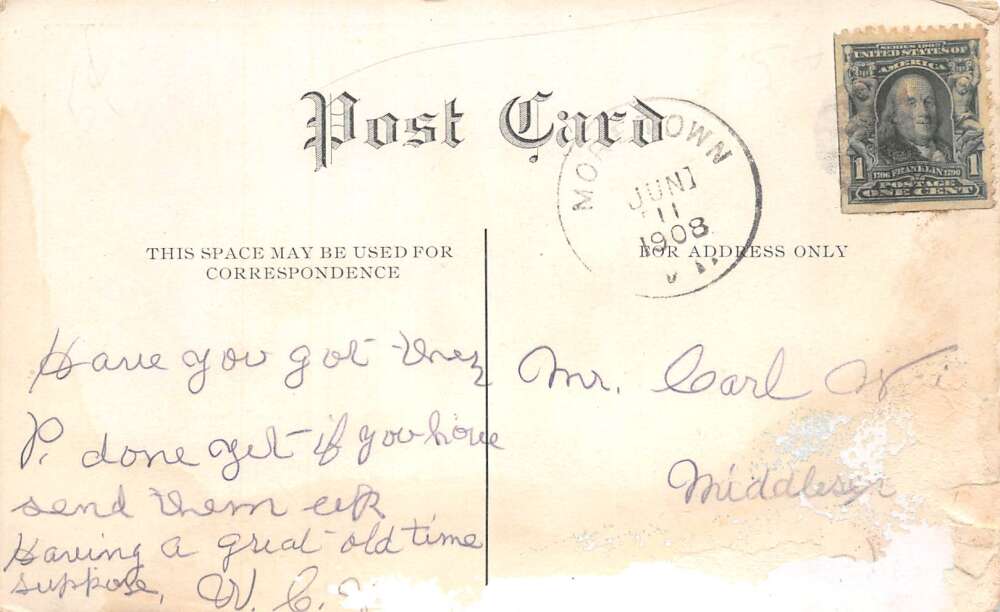 Post Card
SERIES 1902
UNITED STATES OF
AMERICA
1 1
1706 FRANKLIN 1790
POSTAGE
ONE CENT
TOWN
JUN
11
1908
THIS SPACE MAY BE USED FOR
CORRESPONDENCE
FOR ADDRESS ONLY
Have you got they
P. done yet if you have
send them up
Having a great old time
suppose, W. C.
Mr. Carl
Middlesex